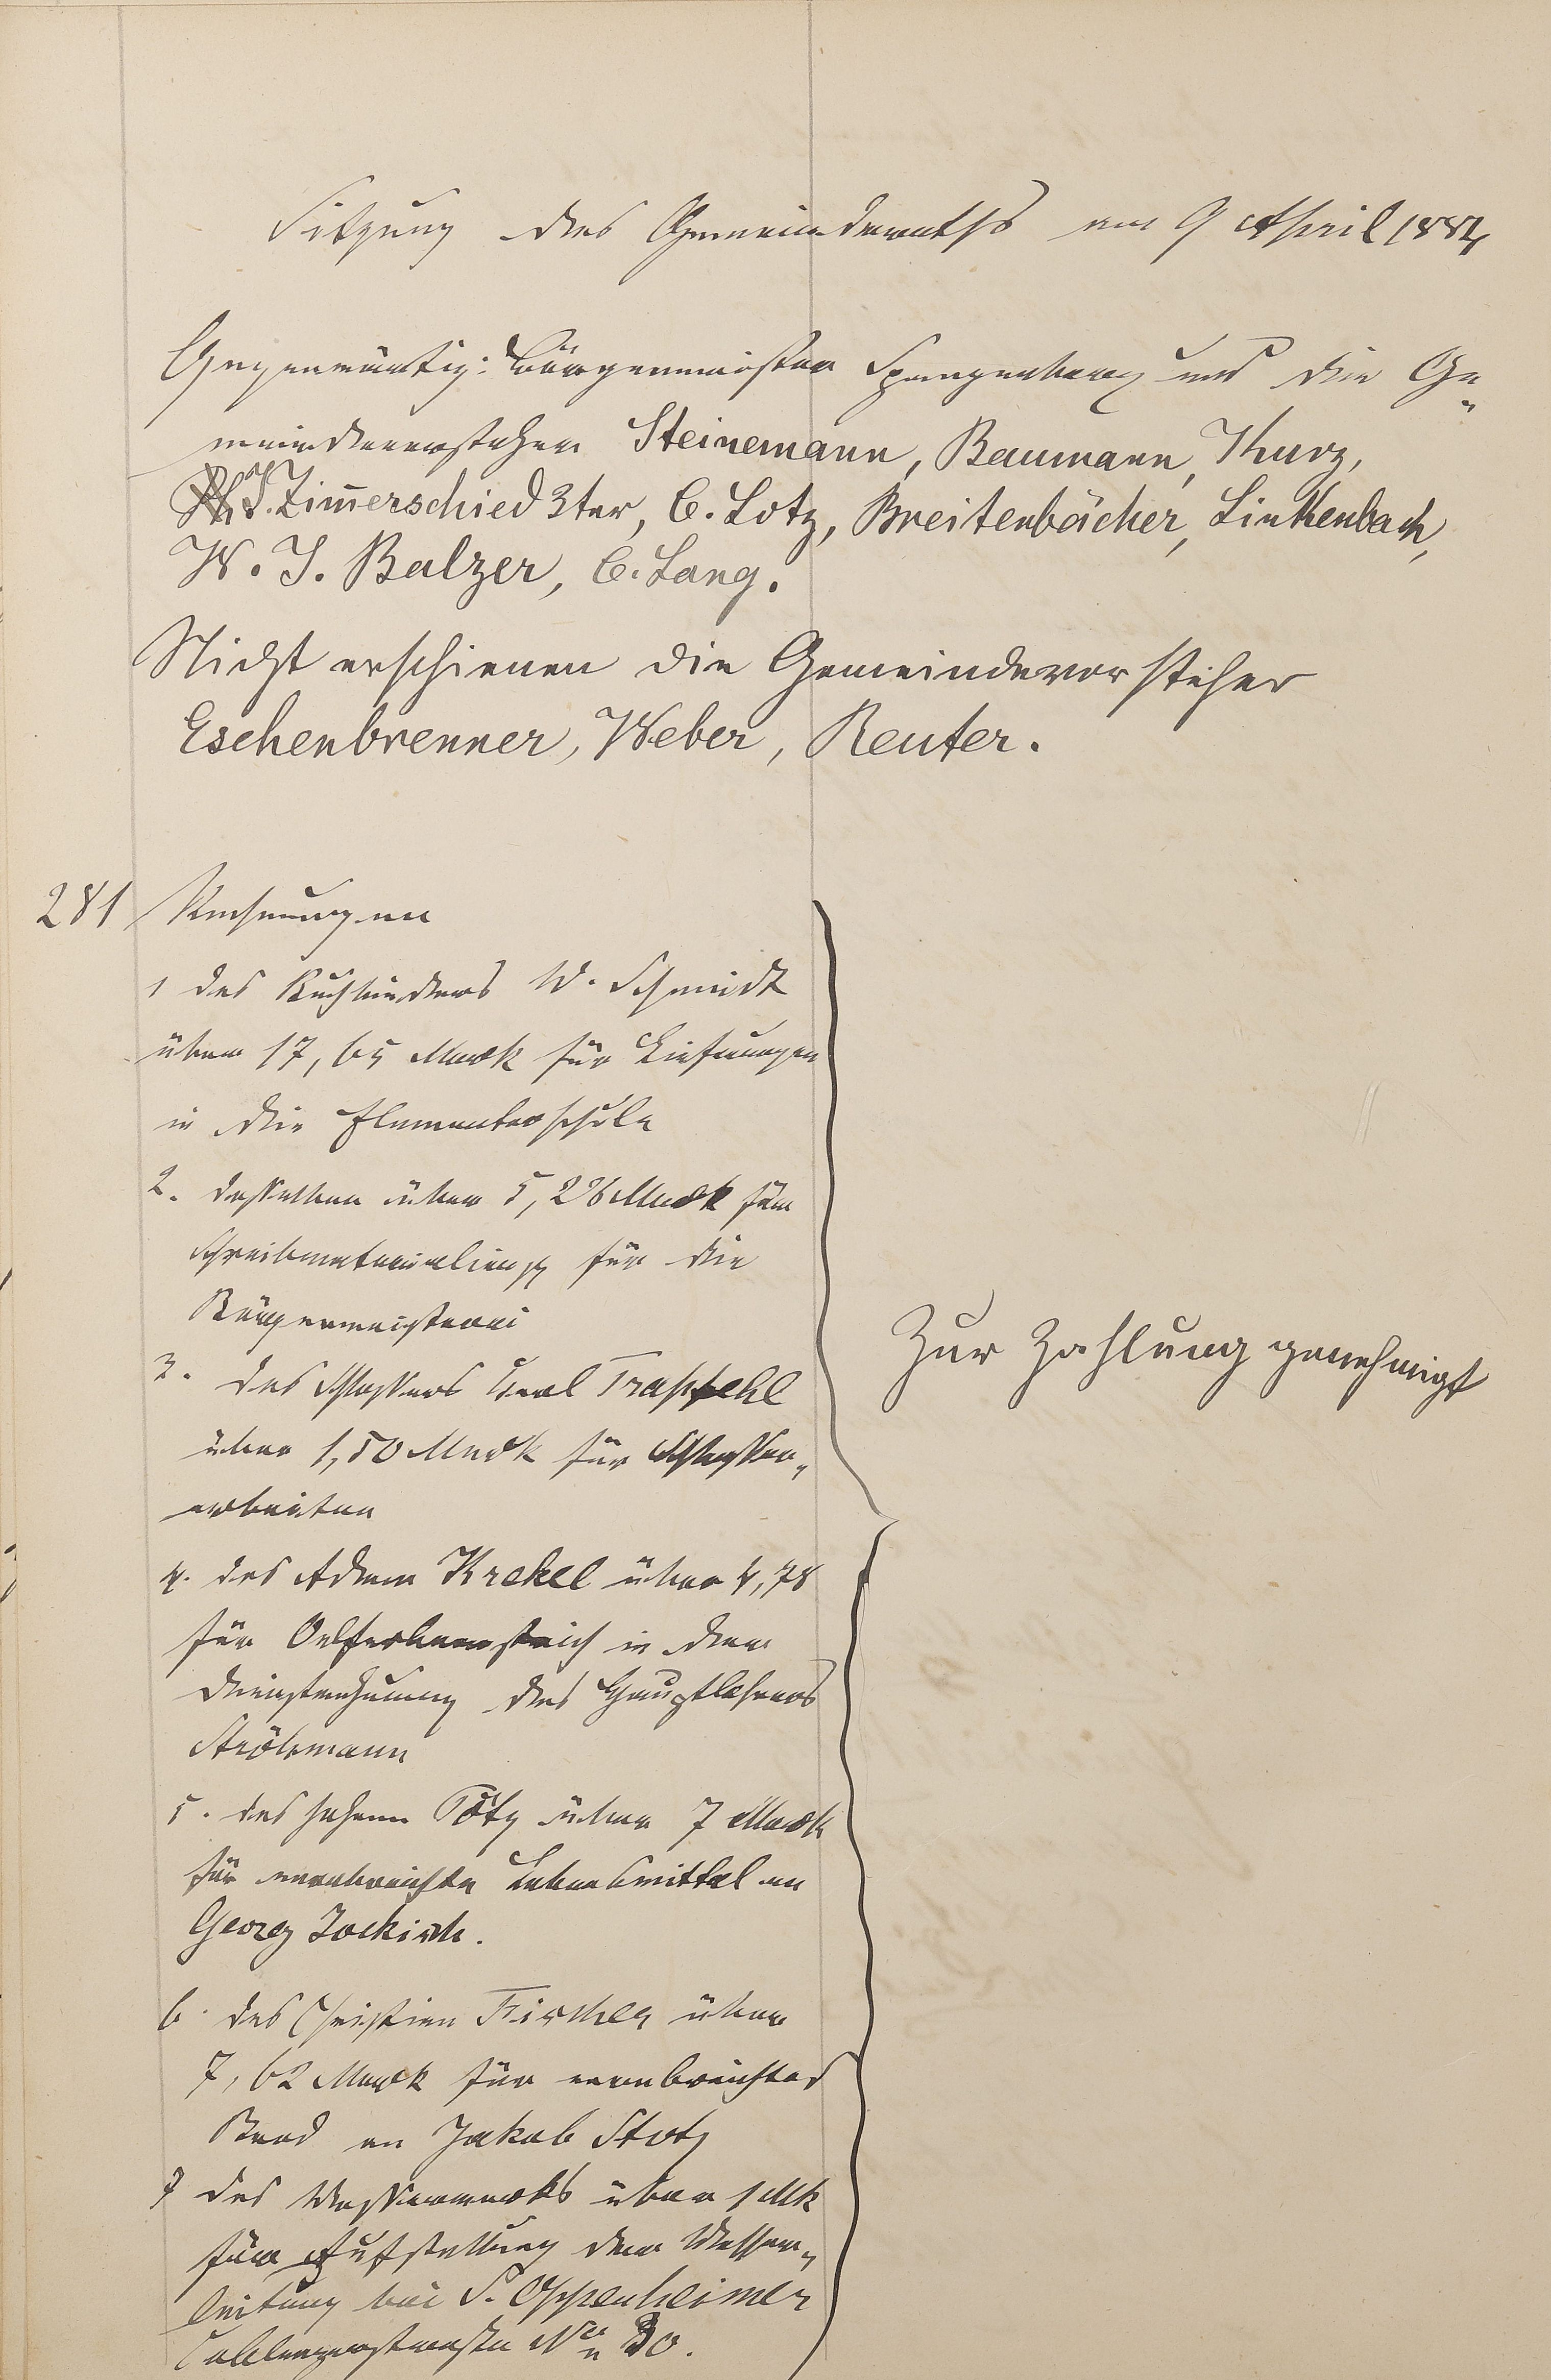 Sitzung des Gemeinderaths am 9 April 1884
Gegenwärtig: Bürgermeister Spangenberg und die Ge„
meindevorsteher Steinemann, Baumann, Kurz,
J. Zimerschied 3ter, C. Lotz, Breitenbächer, Linkenbach,
W. J. Balzer, C. Lang.
Nicht erschienen die Gemeindevorsteher
Eschenbrenner, Weber, Reuter.
281 Rechnungen
1 des Buchbinders W. Schmidt
über 17,65 Mark für Liefrungen
in die Elementarschule
2. desselben über 5,26 Mark für
Schreibmaterialien für die
Bürgermeisterei
3. des Schlossers Carl
über 1,50 Mark für Schlosser„
arbeiten
4. des Adam Krekel über 4,78
für Oelfarbanstrich in der
Dienstwohnung des Hauptlehrers
Ströhmann
5. des Johann Götz über 7 Mark
für verabreichte Lebensmittel an
Georg Jockisch.
6. des Christian Fischer über
7,62 Mark für verabreichtes
Brod an Jakob Stotz
7 des Wasserwerks über 1 Mk
für Aufstellung der Wasser„
leitung bei S. Oppenheimer
Coblenzerstraße No 30.
Zur Zahlung genehmigt